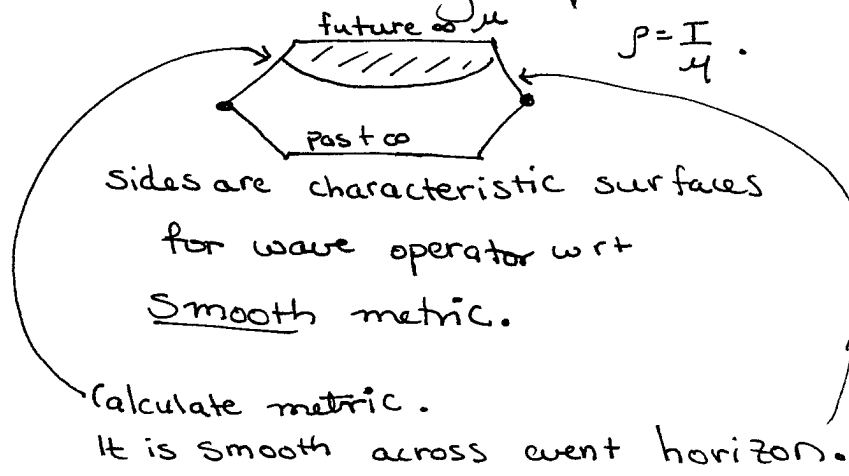 future ∞ μ
ρ = I/μ .
past ∞
sides are characteristic surfaces
for wave operator wrt
Smooth metric.
Calculate metric.
It is smooth across event horizon.